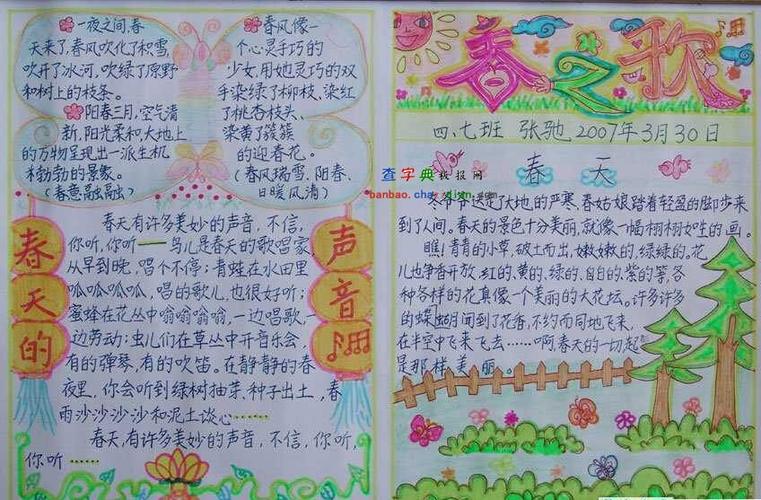 一夜之间,春
天来了,春风吹化了积雪,
吹开了冰河,吹绿了原野
和树上的枝条。
阳春三月,空气清
新,阳光柔和大地上
的万物呈现出一派生机
勃勃的景象。
(春意融融)
春风像一
个心灵手巧的
少女,用她灵巧的双
手染绿了柳枝、染红
了桃杏枝头、
染黄了簇簇
的迎春花。
(春风瑞雪,阳春、
日暖风清)
春天的
声音
春天有许多美妙的声音,不信,
你听,你听——鸟儿是春天的歌唱家,
从早到晚,唱个不停;青蛙在水田里
呱呱呱呱,唱的歌儿,也很好听;
蜜蜂在花丛中嗡嗡嗡嗡,一边唱歌,一
边劳动;虫儿们在草丛中开音乐会,
有的弹琴,有的吹笛。在静静的春
夜里,你会听到绿树抽芽,种子出土,春
雨沙沙沙沙和泥土谈心……
春天,有许多美妙的声音,不信,你听,
你听……
春之歌
四、七班 张驰 2007年3月30日
查字典 板报网
banbao.chazidian.com
春天
冬爷爷送走了大地的严寒、春姑娘踏着轻盈的脚步来
到了人间。春天的景色十分美丽,就像一幅栩栩如生的画。
瞧!青青的小草,破土而出,嫩嫩的,绿绿的。花
儿也争香开放,红的、黄的、绿的、白的、紫的等,各
种各样的花真像一个美丽的大花坛。许多许多
的蝶 间到了花香,不约而同地飞来,
在半空中飞来飞去……啊春天的一切都
是那样美丽。